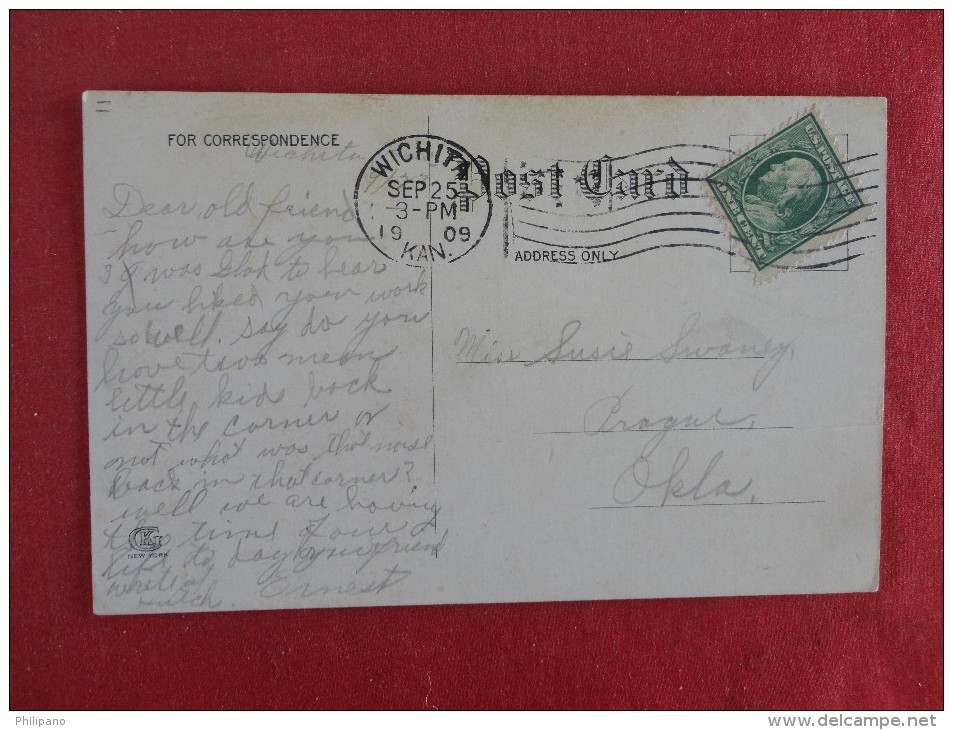 FOR CORRESPONDENCE
Wichita
Dear old friend
how are you
I was Glad to hear
you liked your work
so well. say do you
have two mean
little kids back
in the corner or
not what was that noise
back in that corner?
well we are having
the time of our
life to day your friend
write at
Hutch. Ernest
CK
NEW YORK
WICHITA
SEP 25
3-PM
19 09
KAN.
Post Card
ADDRESS ONLY
U.S. POSTAGE
ONE CENT
Miss Susie Swaney,
Prague,
Okla.
Philipano
www.delcampe.net